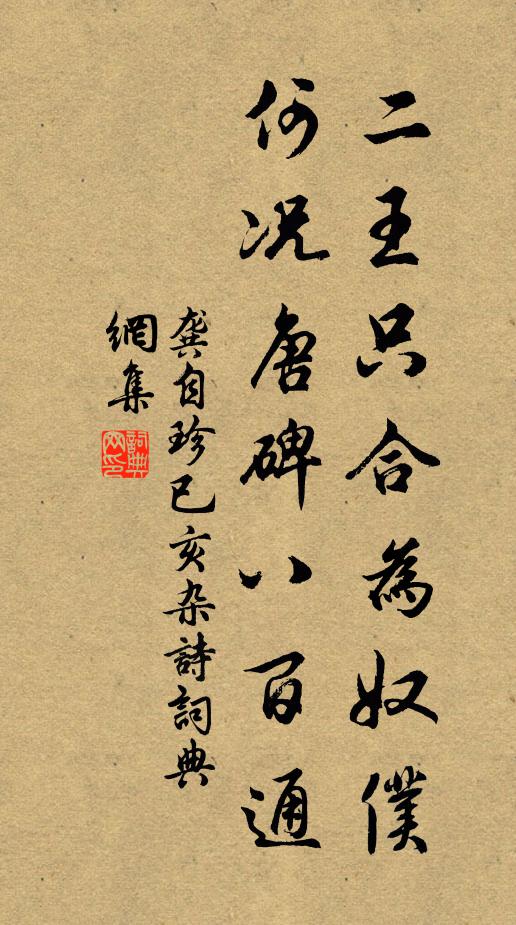 二王只合為奴僕
何况唐碑八百通
龔自珍己亥杂詩詞典
網集
詞典
网印